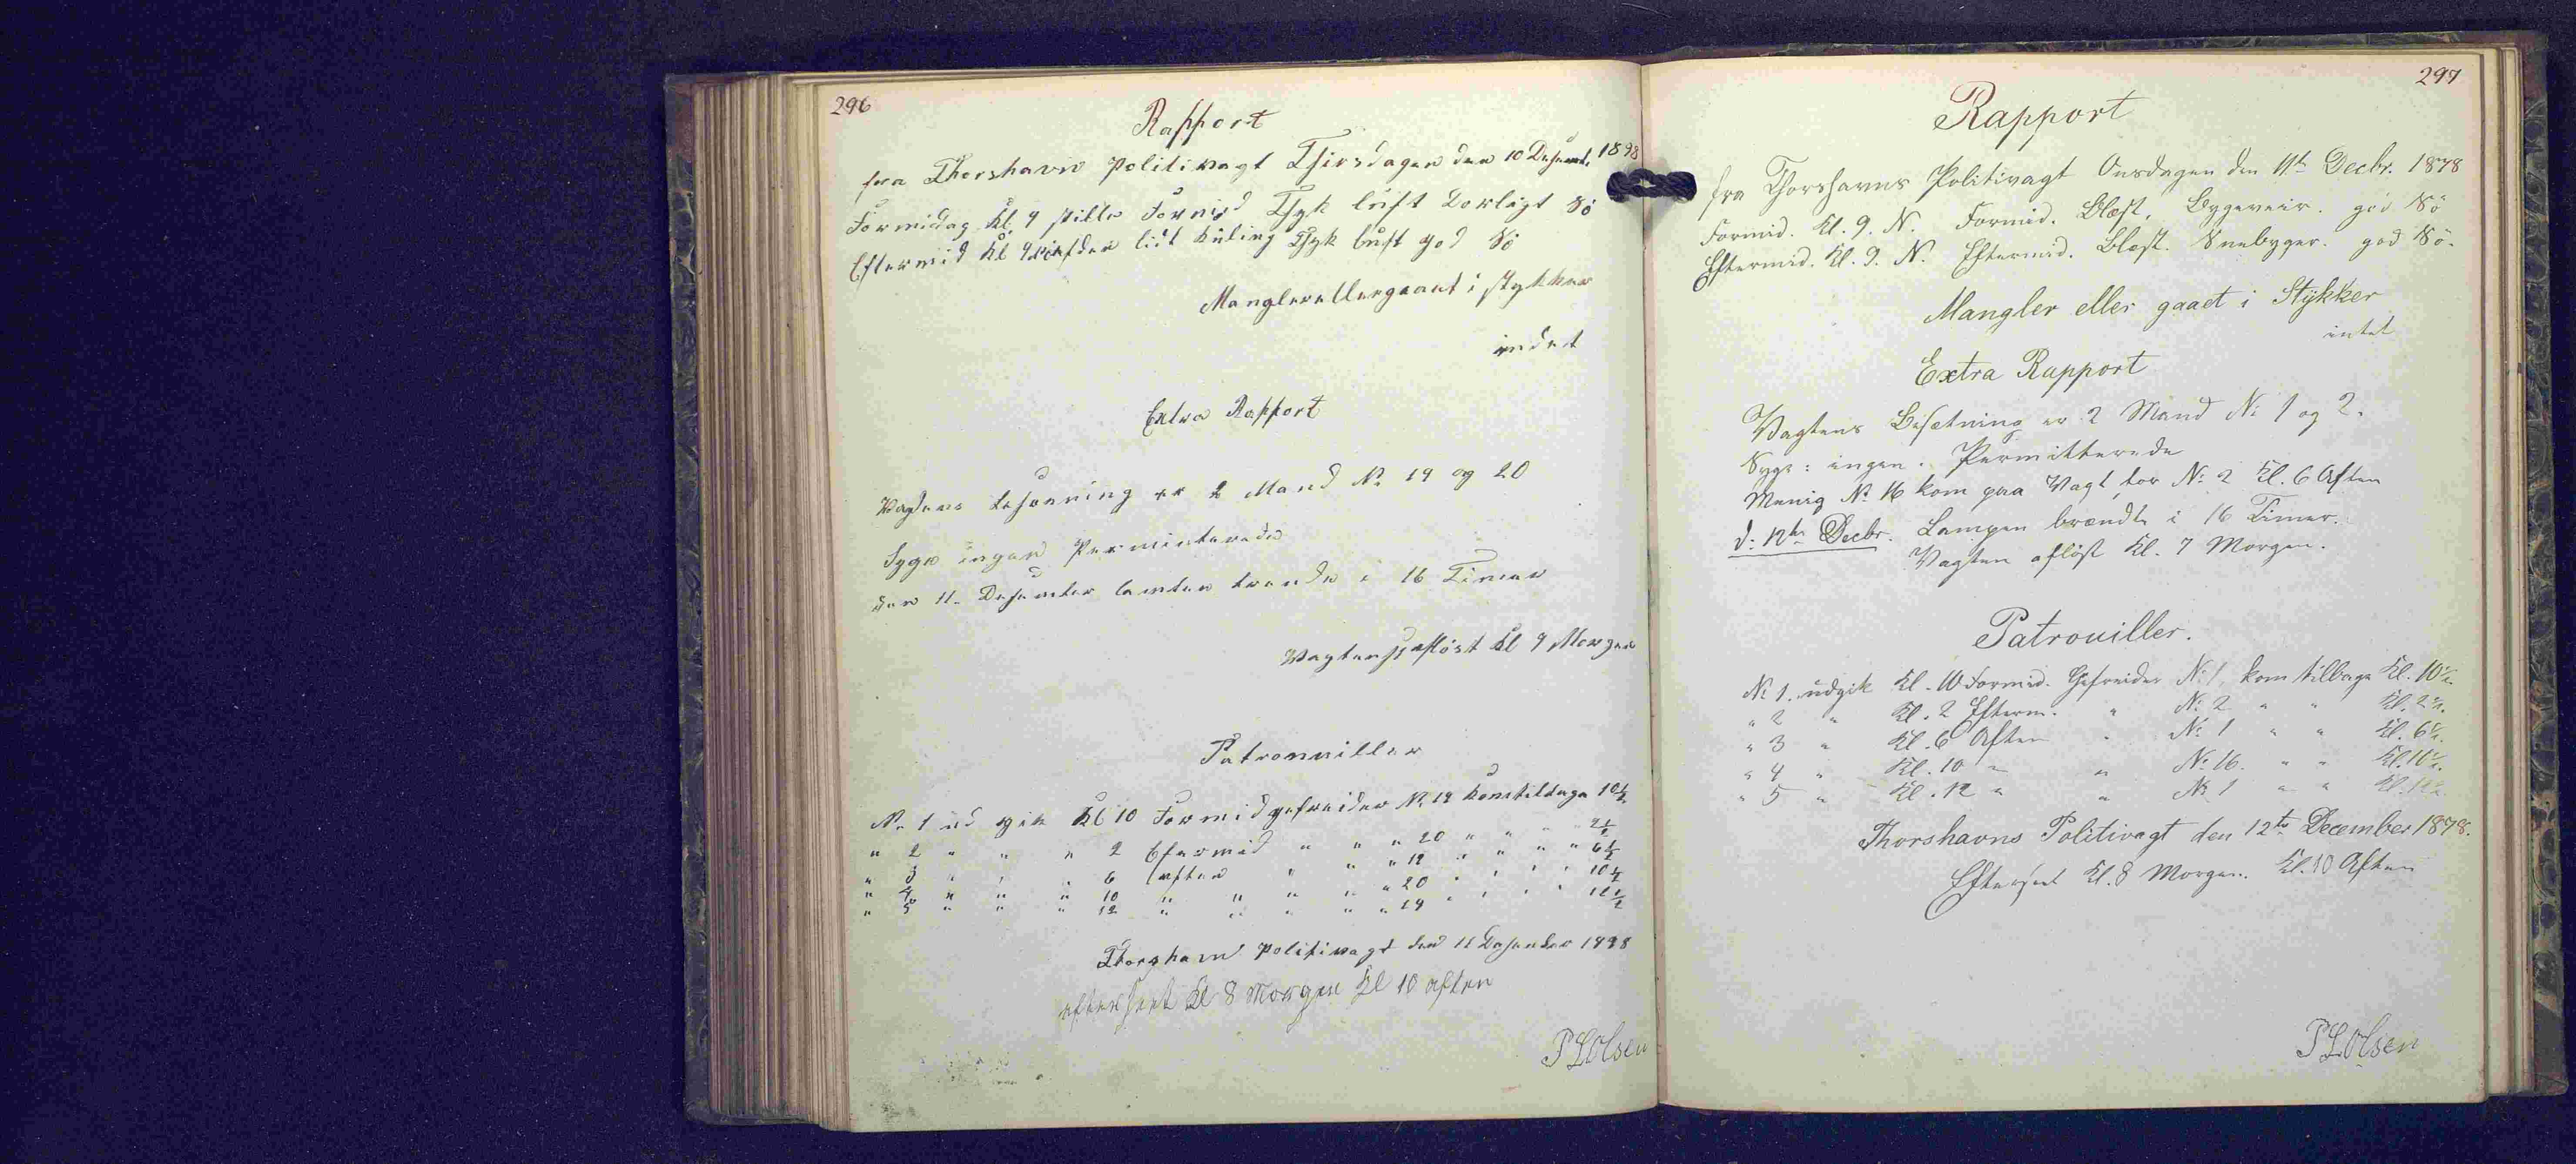 296
Rapport
fra Thorshavn politivagt Thirsdagen den 10 Desemb. 1878
Formidag Kl. 9 stille Formid Thyk luft Dorligt Sö
Eftermid Kl 9 lidt kuling Thyk luft god Sö
Manglerellergaaet i stykker
indet
Extra Rapport
Vagtens besetning er 2 Mand No 19 og 20
Syge ingen Permisterede
den 11. Desember lamten brende i 16 Timer
Vagten aflöst Kl 7 Morgen
Patronuiller
No 1 ud gik Kl 10 Formid gefreider No 19 komtilbage 10½
" 2 " " " 2 Eftermid " " " 20 " " " 2½
" 3 " " " 6 aften " " " 19 " " " 6½
" 4 " " " 10 " " " " 20 " " " 10½
" 5 " " " 12 " " " " 19 " " " 12½
Thorshavn politivagt den 11 Desember 1878
efterseet Kl 8 Morgen Kl 10 aften
P L Olsen
297
Rapport
fra Thorshavns Politivagt Onsdagen den 11te Decbr. 1878
Formid. Kl. 9. N. Formid. Blæst, Bygeveir. god Sö
Eftermid. Kl. 9. N. Eftermid. Blæst. Snebyger. god Sö.
Mangler eller gaaet i Stykker
intet
Extra Rapport
Vagtens Besætning er 2 Mand No 1 og 2.
Syge: ingen. Permitterede
Menig No 16 kom paa Vagt for No 2 Kl. 6 Aften
d: 12te Decbr. Lampen brændte i 16 Timer.
Vagten aflöst Kl. 7 Morgen.
Patrouiller.
No 1. udgik Kl. 10 Formid. Gefreider No 1, kom tilbage Kl. 10½.
" 2 " Kl. 2 Efterm. " No 2 " " Kl. 2½.
" 3 " Kl. 6 Aften " No 1 " " Kl. 6½.
" 4 " Kl. 10 " " No 16. " " Kl. 10½.
" 5 " Kl. 12 " " No 1 " " Kl. 12½
Thorshavns Politivagt den 12te December 1878.
Efterseet Kl. 8 Morgen. Kl. 10 Aften
P L Olsen